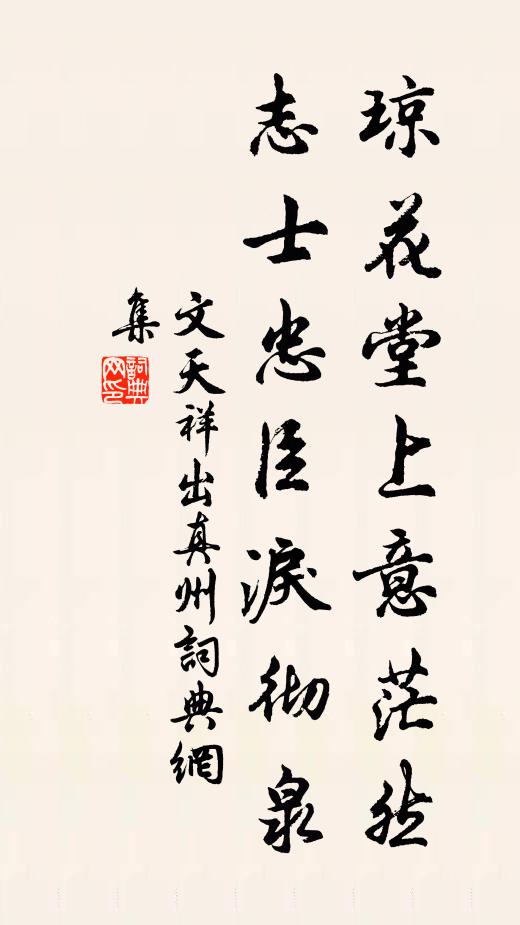 琼花堂上意茫然
志士忠臣淚彻泉
文天祥出真州詞典網
集
詞典
网印